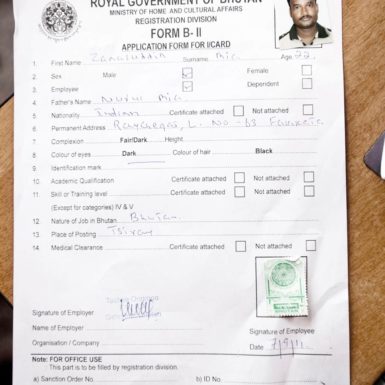 ROYAL GOVERNMENT OF BHUTAN
MINISTRY OF HOME AND CULTURAL AFFAIRS
REGISTRATION DIVISION
FORM B- II
APPLICATION FORM FOR I/CARD
1. First Name Surname Mia Age 22
2. Sex Male Female
3. Employee Dependent
4. Father's Name Mia
5. Nationality Indian Certificate attached Not attached
6. Permanent Address
7. Complexion Fair/Dark Height
8. Colour of eyes Dark Colour of hair Black
9. Identification mark
10. Academic Qualification Certificate attached Not attached
11. Skill or Training level Certificate attached Not attached
(Except for categories) IV & V
12. Nature of Job in Bhutan Bhutan
13. Place of Posting
14. Medical Clearance Certificate attached Not attached
Signature of Employer
Name of Employer Signature of Employee
Organisation / Company Date
Note: FOR OFFICE USE
This part is to be filled by registration division.
a) Sanction Order No. b) ID No.